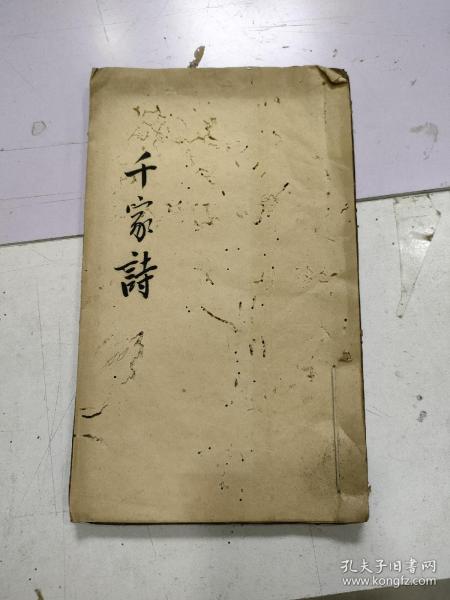 千家詩
孔夫子旧书网
www.kongfz.com